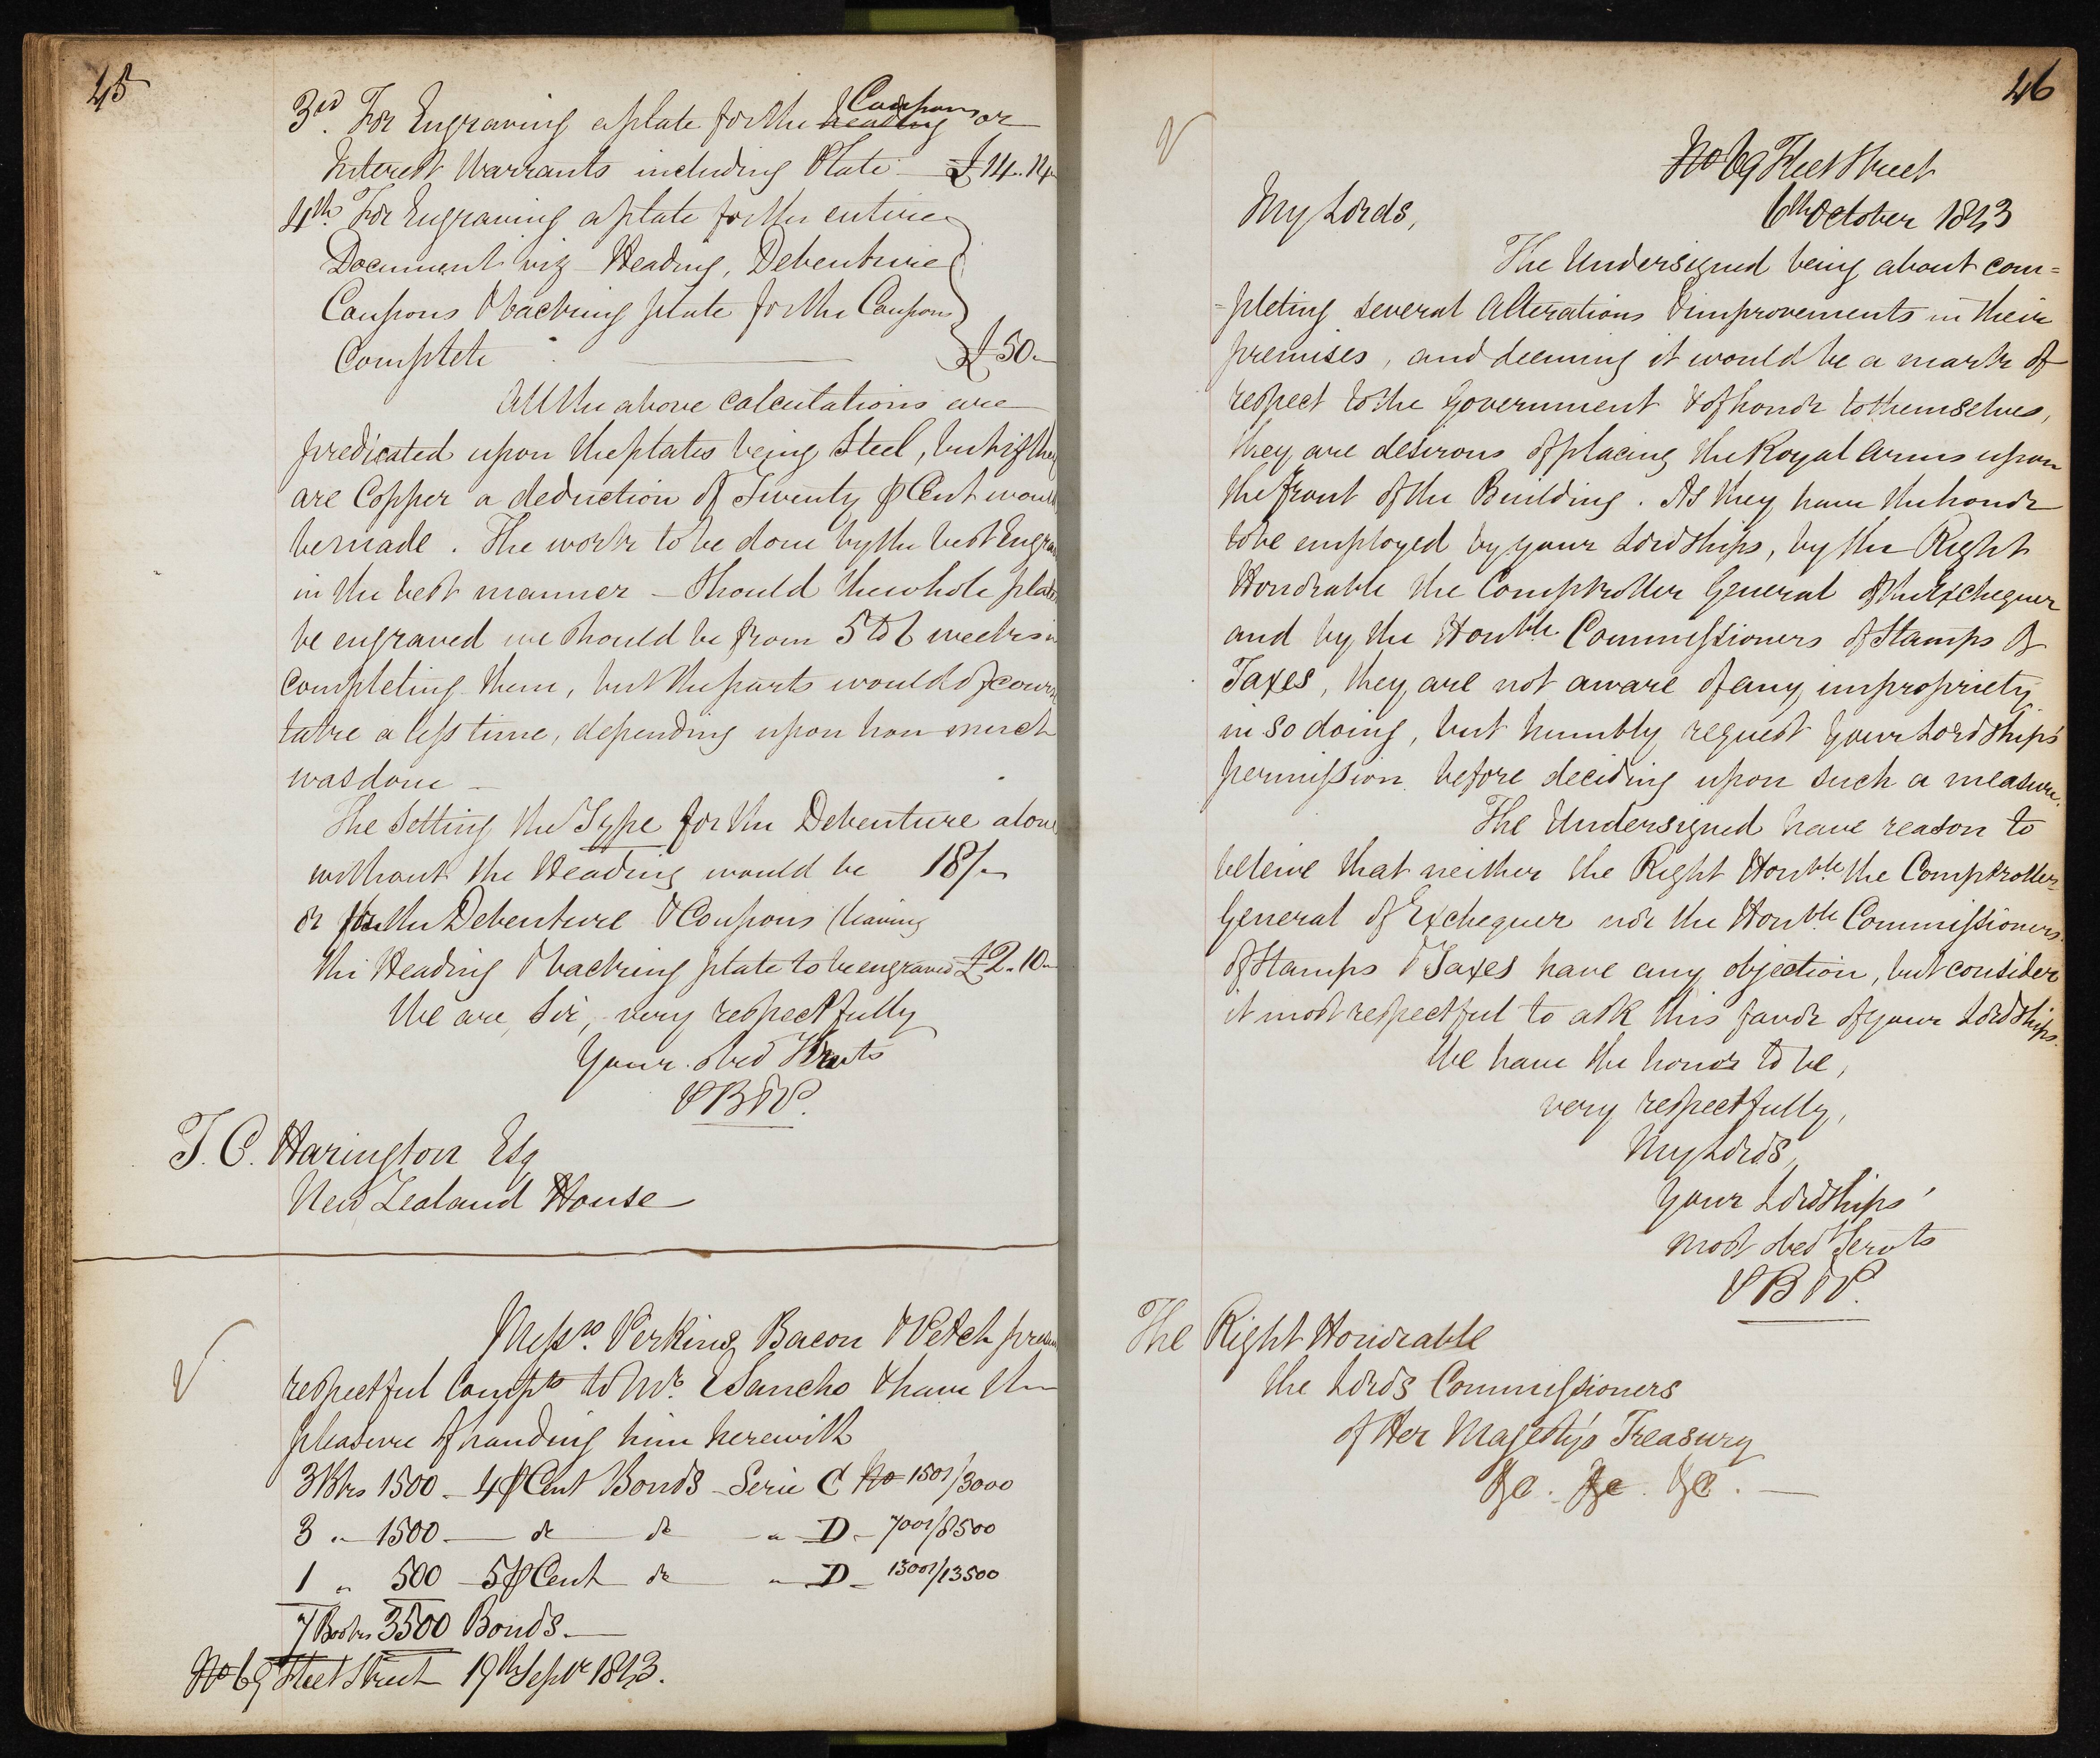 45
3rd. For Engraving a plate for the heading Coupons or
Interest Warrants including Plate £14.14
4th. For Engraving a plate for the entire
Document viz - Heading, Debenture
Coupons & backing plate for the Coupons
Complete £50-
All the above calculations are
predicated upon the plates being Steel, but if they
are Copper a deduction of Twenty ⅌ Cent would
be made. The work to be done by the best Engra
in the best manner - Should the whole plate
be engraved we should be from 5 to 6 weeks in
completing them, but the parts would of course
take a less time, depending upon how much
was done -
The Setting the Type for the Debenture alone
without the Heading would be 18/-
or for the Debenture & Coupons (leaving
the Heading & backing plate to be engraved £2.10-
We are, Sir, very respectfully
Your obed Servts
PB&P.
T. C. Harington Esq
New Zealand House
Messrs. Perkins Bacon & Petch presen
respectful Compts to Mr. E Sancho & have the
pleasure of handing him herewith
3 Bks 1500 - 4 ⅌ Cent Bonds - Serie C No 1501/3000
3 " 1500 - do do " D - 7001/8500
1 " 500 - 5 ⅌ Cent do " D - 13001/13500
7 Books 3500 Bonds -
No 69 Fleet Street 19th Septr 1843.
46
No 69 Fleet Street
6th October 1843
My Lords,
The Undersigned being about com=
=pleting several Alterations & improvements in their
premises, and deeming it would be a mark of
respect to the Government & of honor to themselves,
they are desirous of placing the Royal Arms upon
the front of the Building. As they have the honor
to be employed by your Lordships, by the Right
Honorable the Comptroller General of the Exchequer
and by the Honble. Commissioners of Stamps &
Taxes, they are not aware of any impropriety
in so doing, but humbly request your Lordships'
permission before deciding upon such a measure.
The Undersigned have reason to
beleive that neither the Right Honble. the Comptroller
General of Exchequer nor the Honble. Commissioners
of Stamps & Taxes have any objection, but consider
it most respectful to ask this favor of your Lordships.
We have the honor to be,
very respectfully,
My Lords,
Your Lordships'
most obed Servts
PB&P.
The Right Honorable
the Lords Commissioners
of Her Majesty's Treasury
&c. &c. &c. -